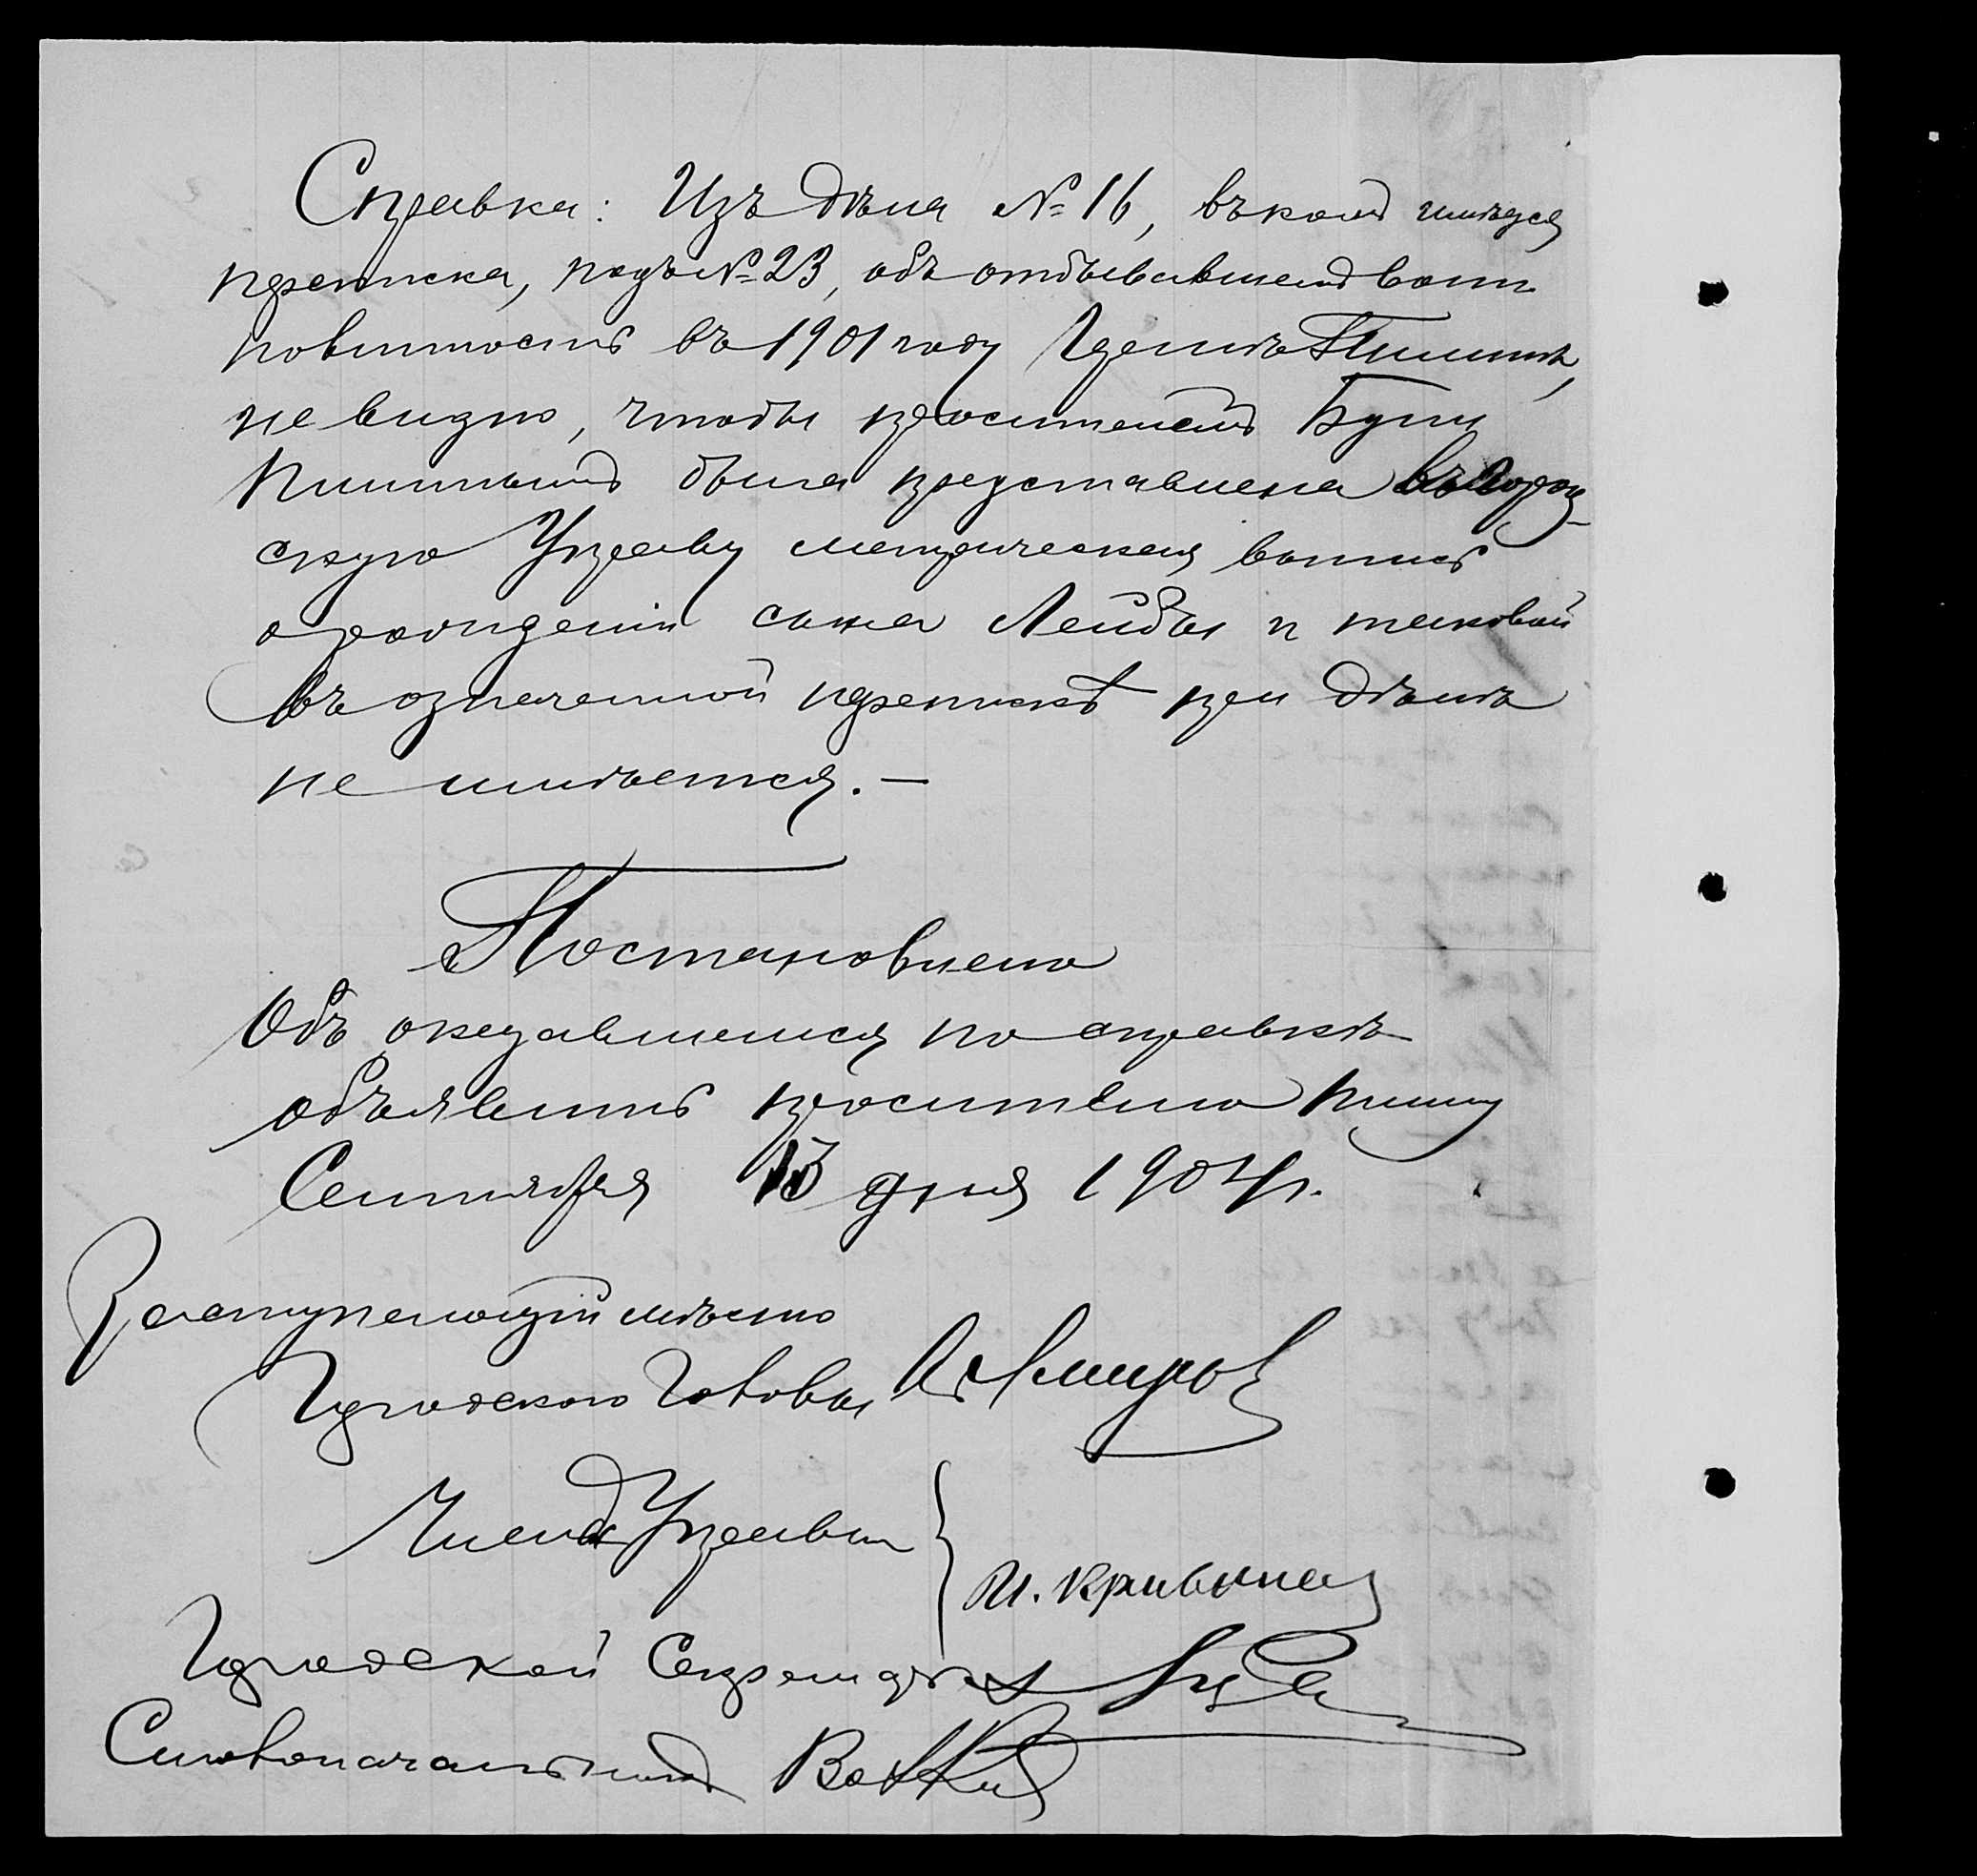 Справка: Изъ дѣла № 16, въ коемъ имѣется
переписка, подъ № 23, объ отбывавшемъ воин.
повинность въ 1901 году
не видно, чтобы просителемъ
была представлена въ Город-
скую Управу метрическая выпись
о рожденіи сына Лейбы и таковой
въ означенной перепискѣ при дѣлѣ
не имѣется. —
Постановлено
Объ оказавшемся по справкѣ
объявить просителю
Сентября 13 дня 1904 г.
Заступающій мѣсто
Городского Головы
Члены Управы
Городской Секретарь
Столоначальникъ